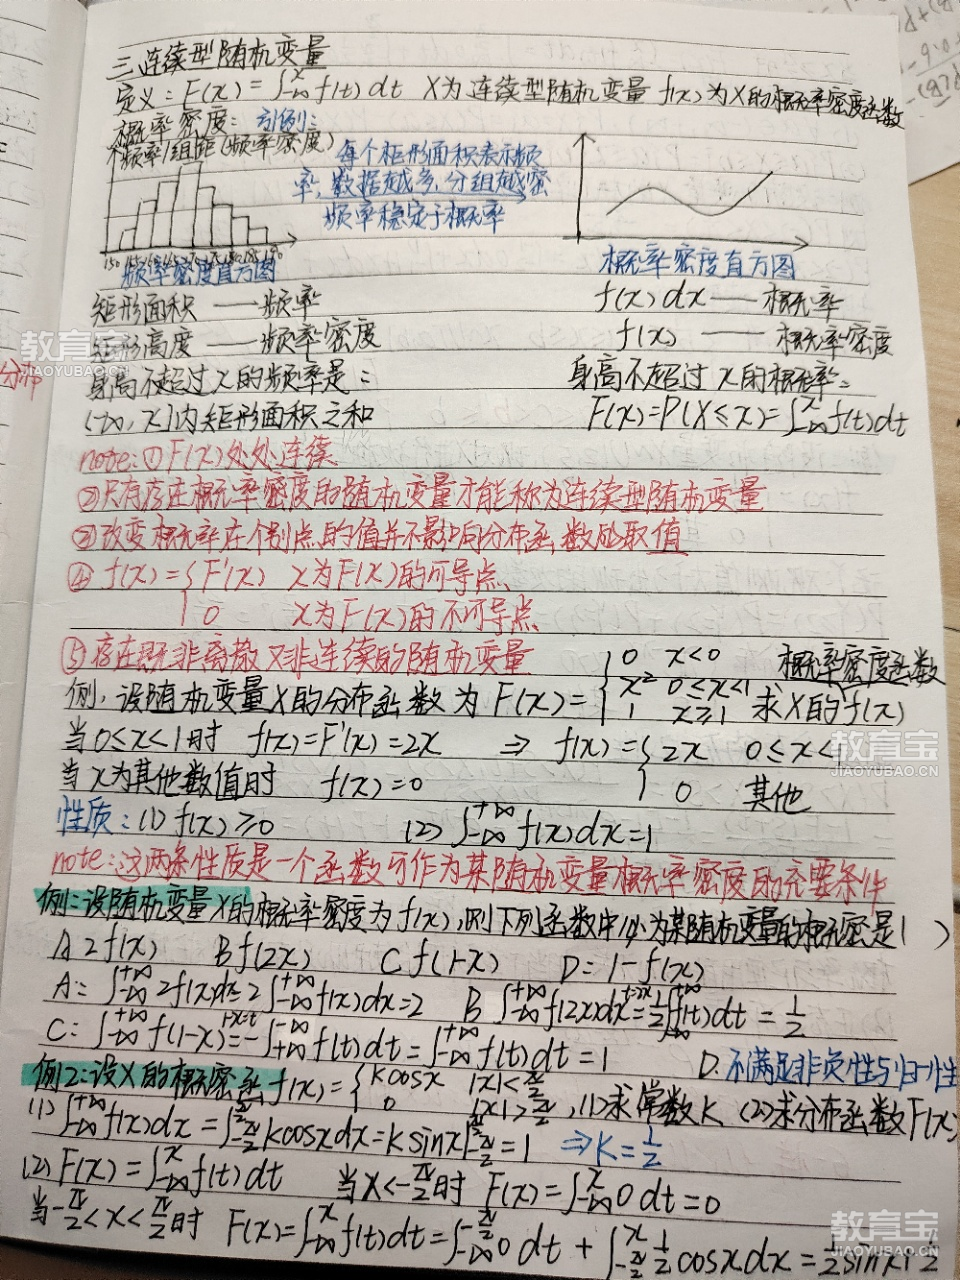 三.连续型随机变量
定义:F(x)=∫_{-∞}^{x} f(t)dt X为连续型随机变量 f(x)为X的概率密度函数
概率密度: 引例:
频率/组距(频率密度)
每个矩形面积表示频
率,数据越多,分组越密
频率稳定于概率
150
频率密度直方图
概率密度直方图
矩形面积——频率
f(x)dx——概率
矩形高度——频率密度
f(x)——概率密度
身高不超过x的频率是:
身高不超过x的概率:
(-∞,x]内矩形面积之和
F(x)=P(X≤x)=∫_{-∞}^{x} f(t)dt
note:①F(x)处处连续
②只有存在概率密度的随机变量才能称为连续型随机变量
③改变概率在个别点的值并不影响分布函数的取值
④ f(x)={F'(x) x为F(x)的可导点
0 x为F(x)的不可导点
⑤存在既非离散又非连续的随机变量
例,设随机变量X的分布函数为F(x)={0 x<0
x² 0≤x<1
1 x≥1
求X的f(x)
概率密度函数
当0≤x<1时 f(x)=F'(x)=2x ⇒ f(x)={2x 0≤x<1
当x为其他数值时 f(x)=0
0 其他
性质:(1) f(x)≥0 (2) ∫_{-∞}^{+∞} f(x)dx=1
note:这两条性质是一个函数可作为某随机变量概率密度的充要条件
例1:设随机变量X的概率密度为f(x),则下列函数中必为某随机变量的概密是( )
A 2f(x) B f(2x) C f(1-x) D:1-f(x)
A:∫_{-∞}^{+∞} 2f(x)dx=2∫_{-∞}^{+∞} f(x)dx=2 B ∫_{-∞}^{+∞} f(2x)dx t=2x = 1/2 ∫_{-∞}^{+∞} f(t)dt=1/2
C:∫_{-∞}^{+∞} f(1-x) 1-x=t = -∫_{+∞}^{-∞} f(t)dt=∫_{-∞}^{+∞} f(t)dt=1 D.不满足非负性与归一性
例2:设X的概密函f(x)={kcosx |x|<π/2
0 |x|>π/2
,(1)求常数K,(2)求分布函数F(x)
(1)∫_{-∞}^{+∞} f(x)dx=∫_{-π/2}^{π/2} kcosxdx=ksinx|_{-π/2}^{π/2}=1 ⇒K=1/2
(2)F(x)=∫_{-∞}^{x} f(t)dt 当X<-π/2时 F(x)=∫_{-∞}^{x} 0dt=0
当-π/2<x<π/2时 F(x)=∫_{-∞}^{x} f(t)dt=∫_{-∞}^{-π/2} 0dt+∫_{-π/2}^{x} 1/2 cosxdx=1/2 sinx+1/2
分布
教育宝
JIAOYUBAO.CN
教育宝
JIAOYUBAO.CN
教育宝
JIAOYUBAO.CN